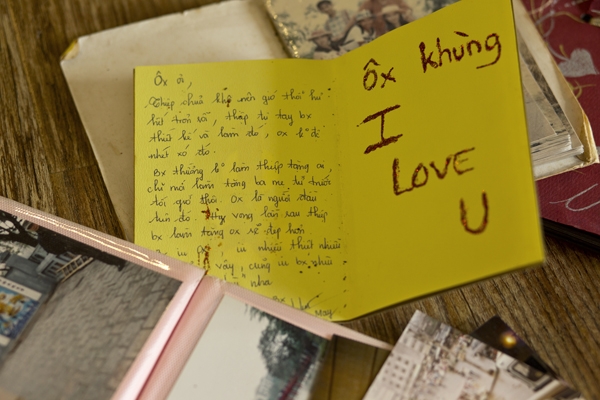 Ôx ơi,
Thiệp chưa khô nên giờ thời hơi
hít tròn vài, thiệp tự tay bx
thiết kế và làm đó, ox k° đc
nhét xó đó.
Bx thường k° làm thiệp tặng ai,
chỉ mới làm tặng ba mẹ từ trước
tới giờ thôi. Ox là người đầu
tiên đó. Hy vọng lần sau thiệp
bx làm tặng ox sẽ đẹp hơn
iu nhiều thiệt nhiều
vậy, cũng iu bx nhiều
nha
ôx khùng
I
LOVE
U